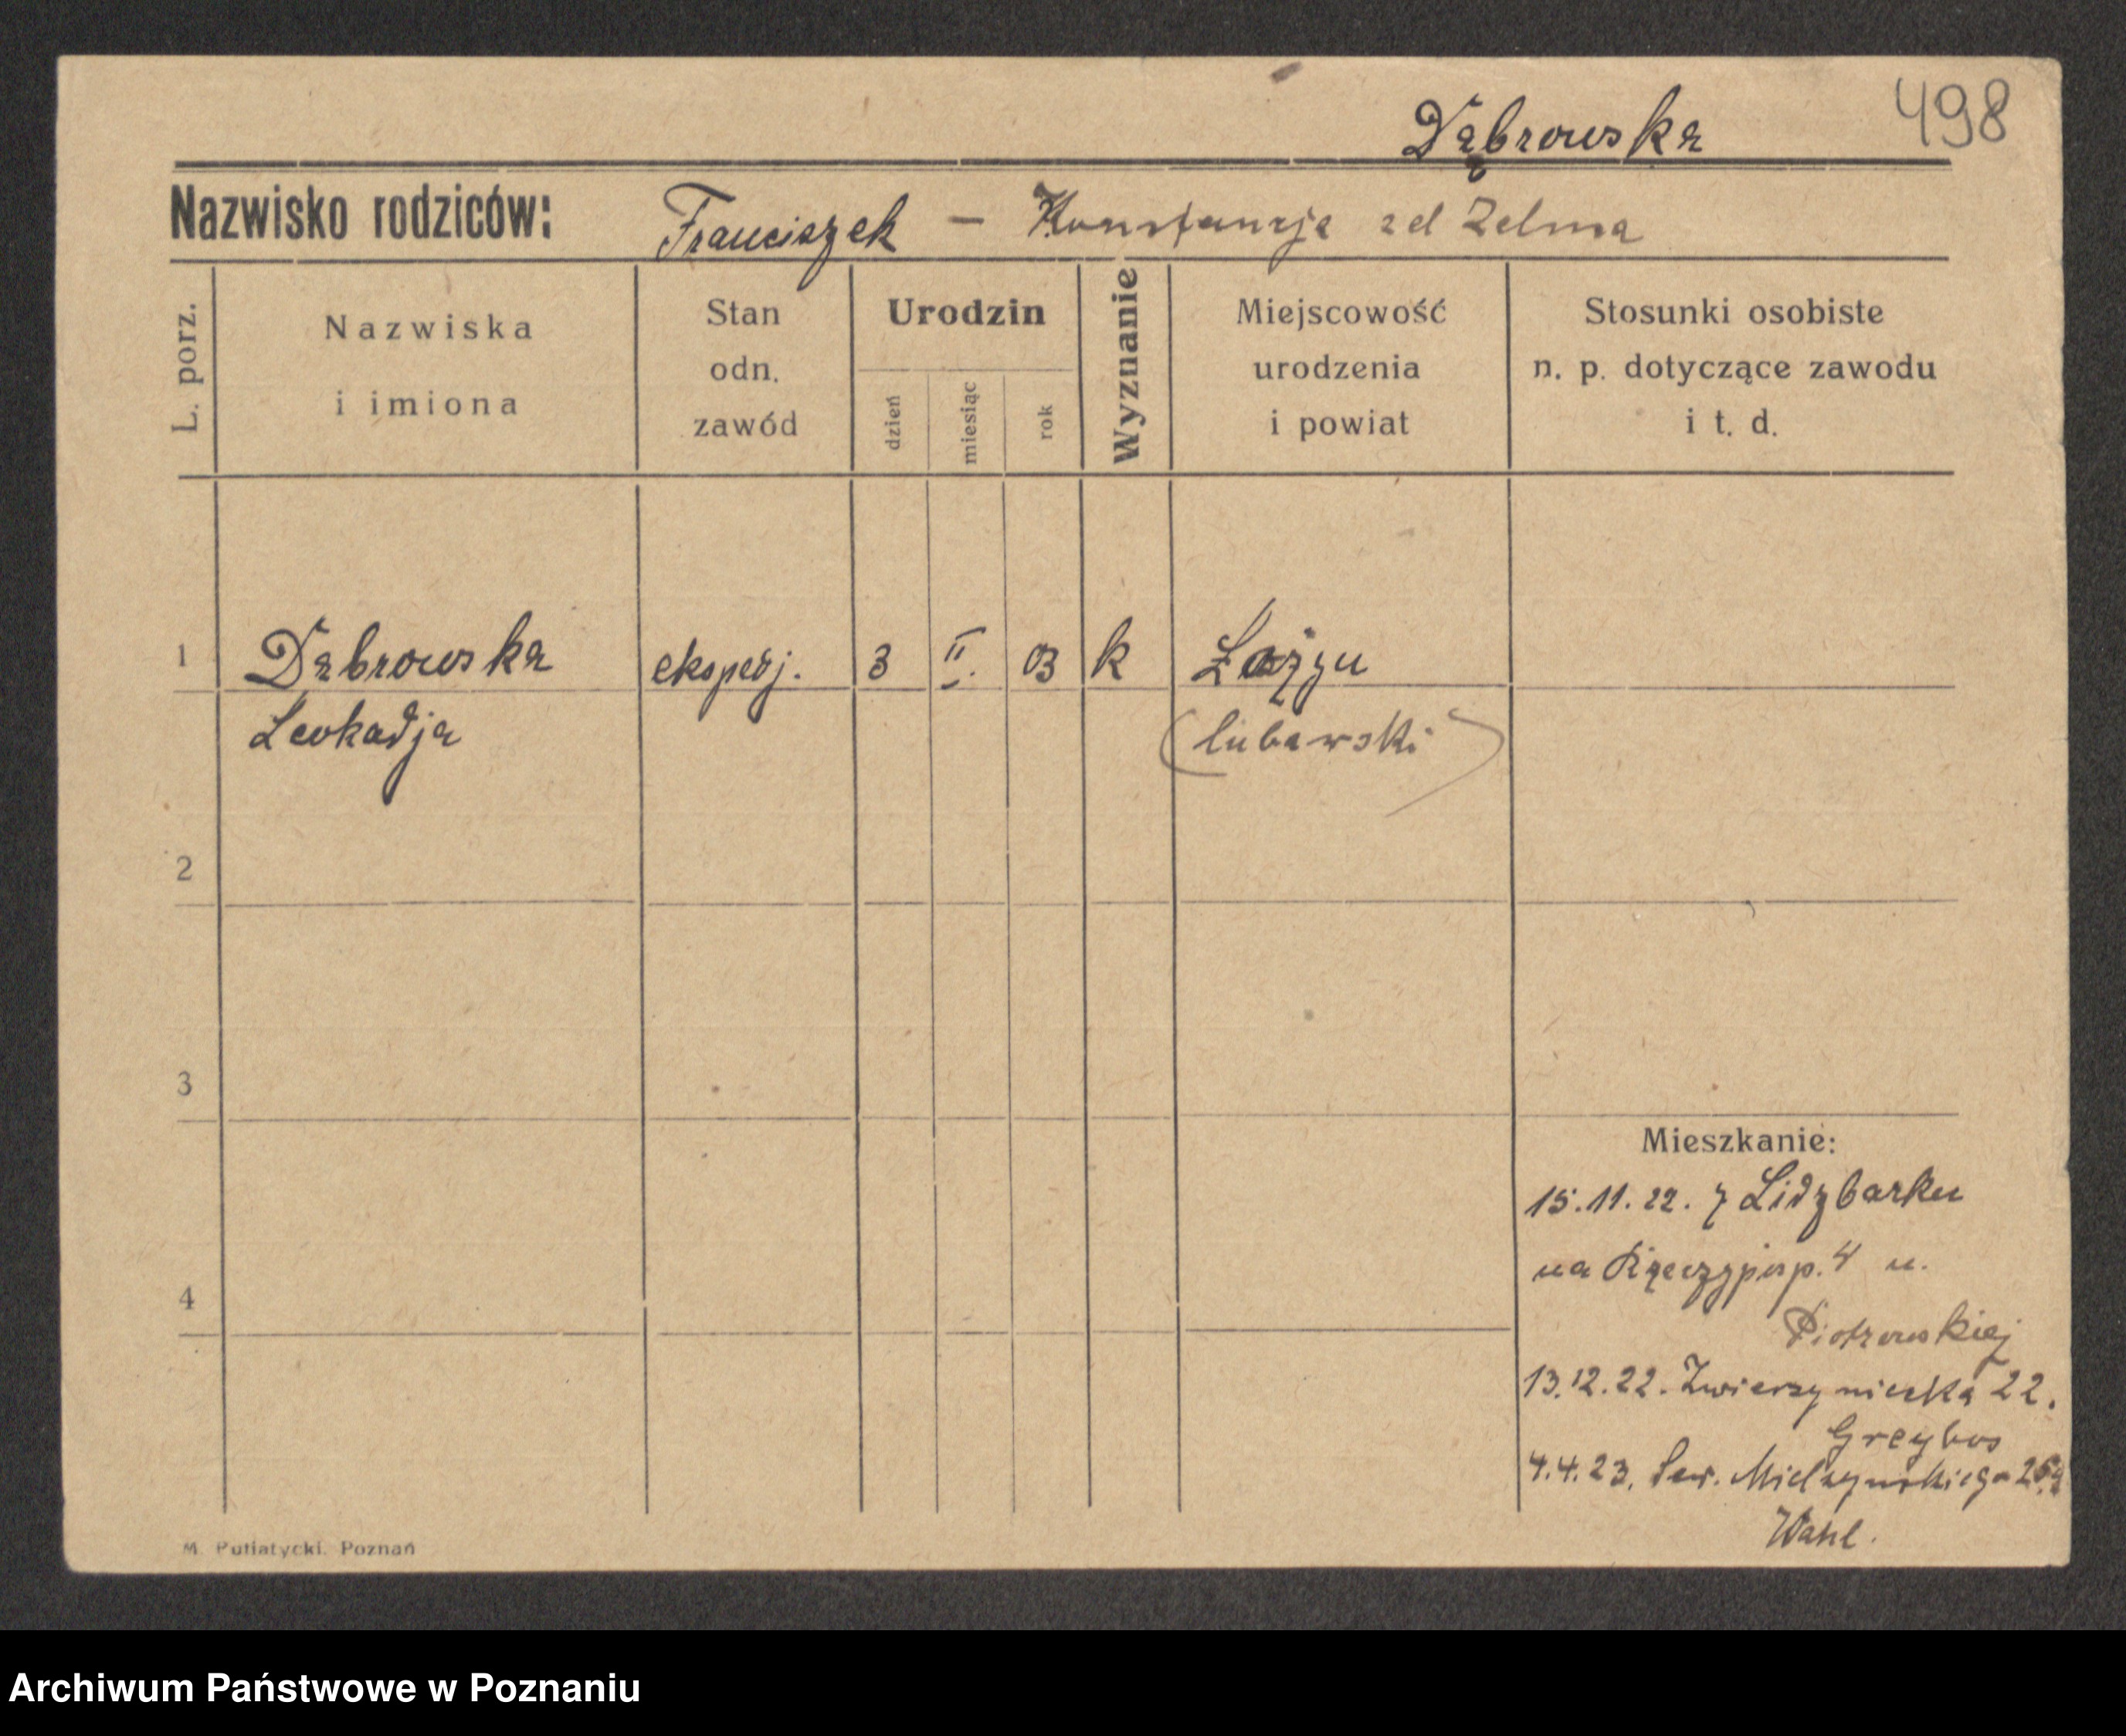 498
Dąbrowska
Nazwisko rodziców: Franciszek – Konstancja zd Zelma
L. porz.
Nazwiska i imiona
Stan odn. zawód
Urodzin
dzień
miesiąc
rok
Wyznanie
Miejscowość urodzenia i powiat
Stosunki osobiste n. p. dotyczące zawodu i t. d.
1 Dąbrowska ekspedj. 3 II. 03 k
Leokadja (lubawski)
2
3
4
Mieszkanie:
15.11.22. z Lidzbarku
na Rzeczyposp. 4 u.
Piotrowskiej
13.12.22. Zwierzyniecka 22.
Greybos
4.4.23. Sew. Mielżyńskiego
Wahl.
M. Putiatycki. Poznań
Archiwum Państwowe w Poznaniu